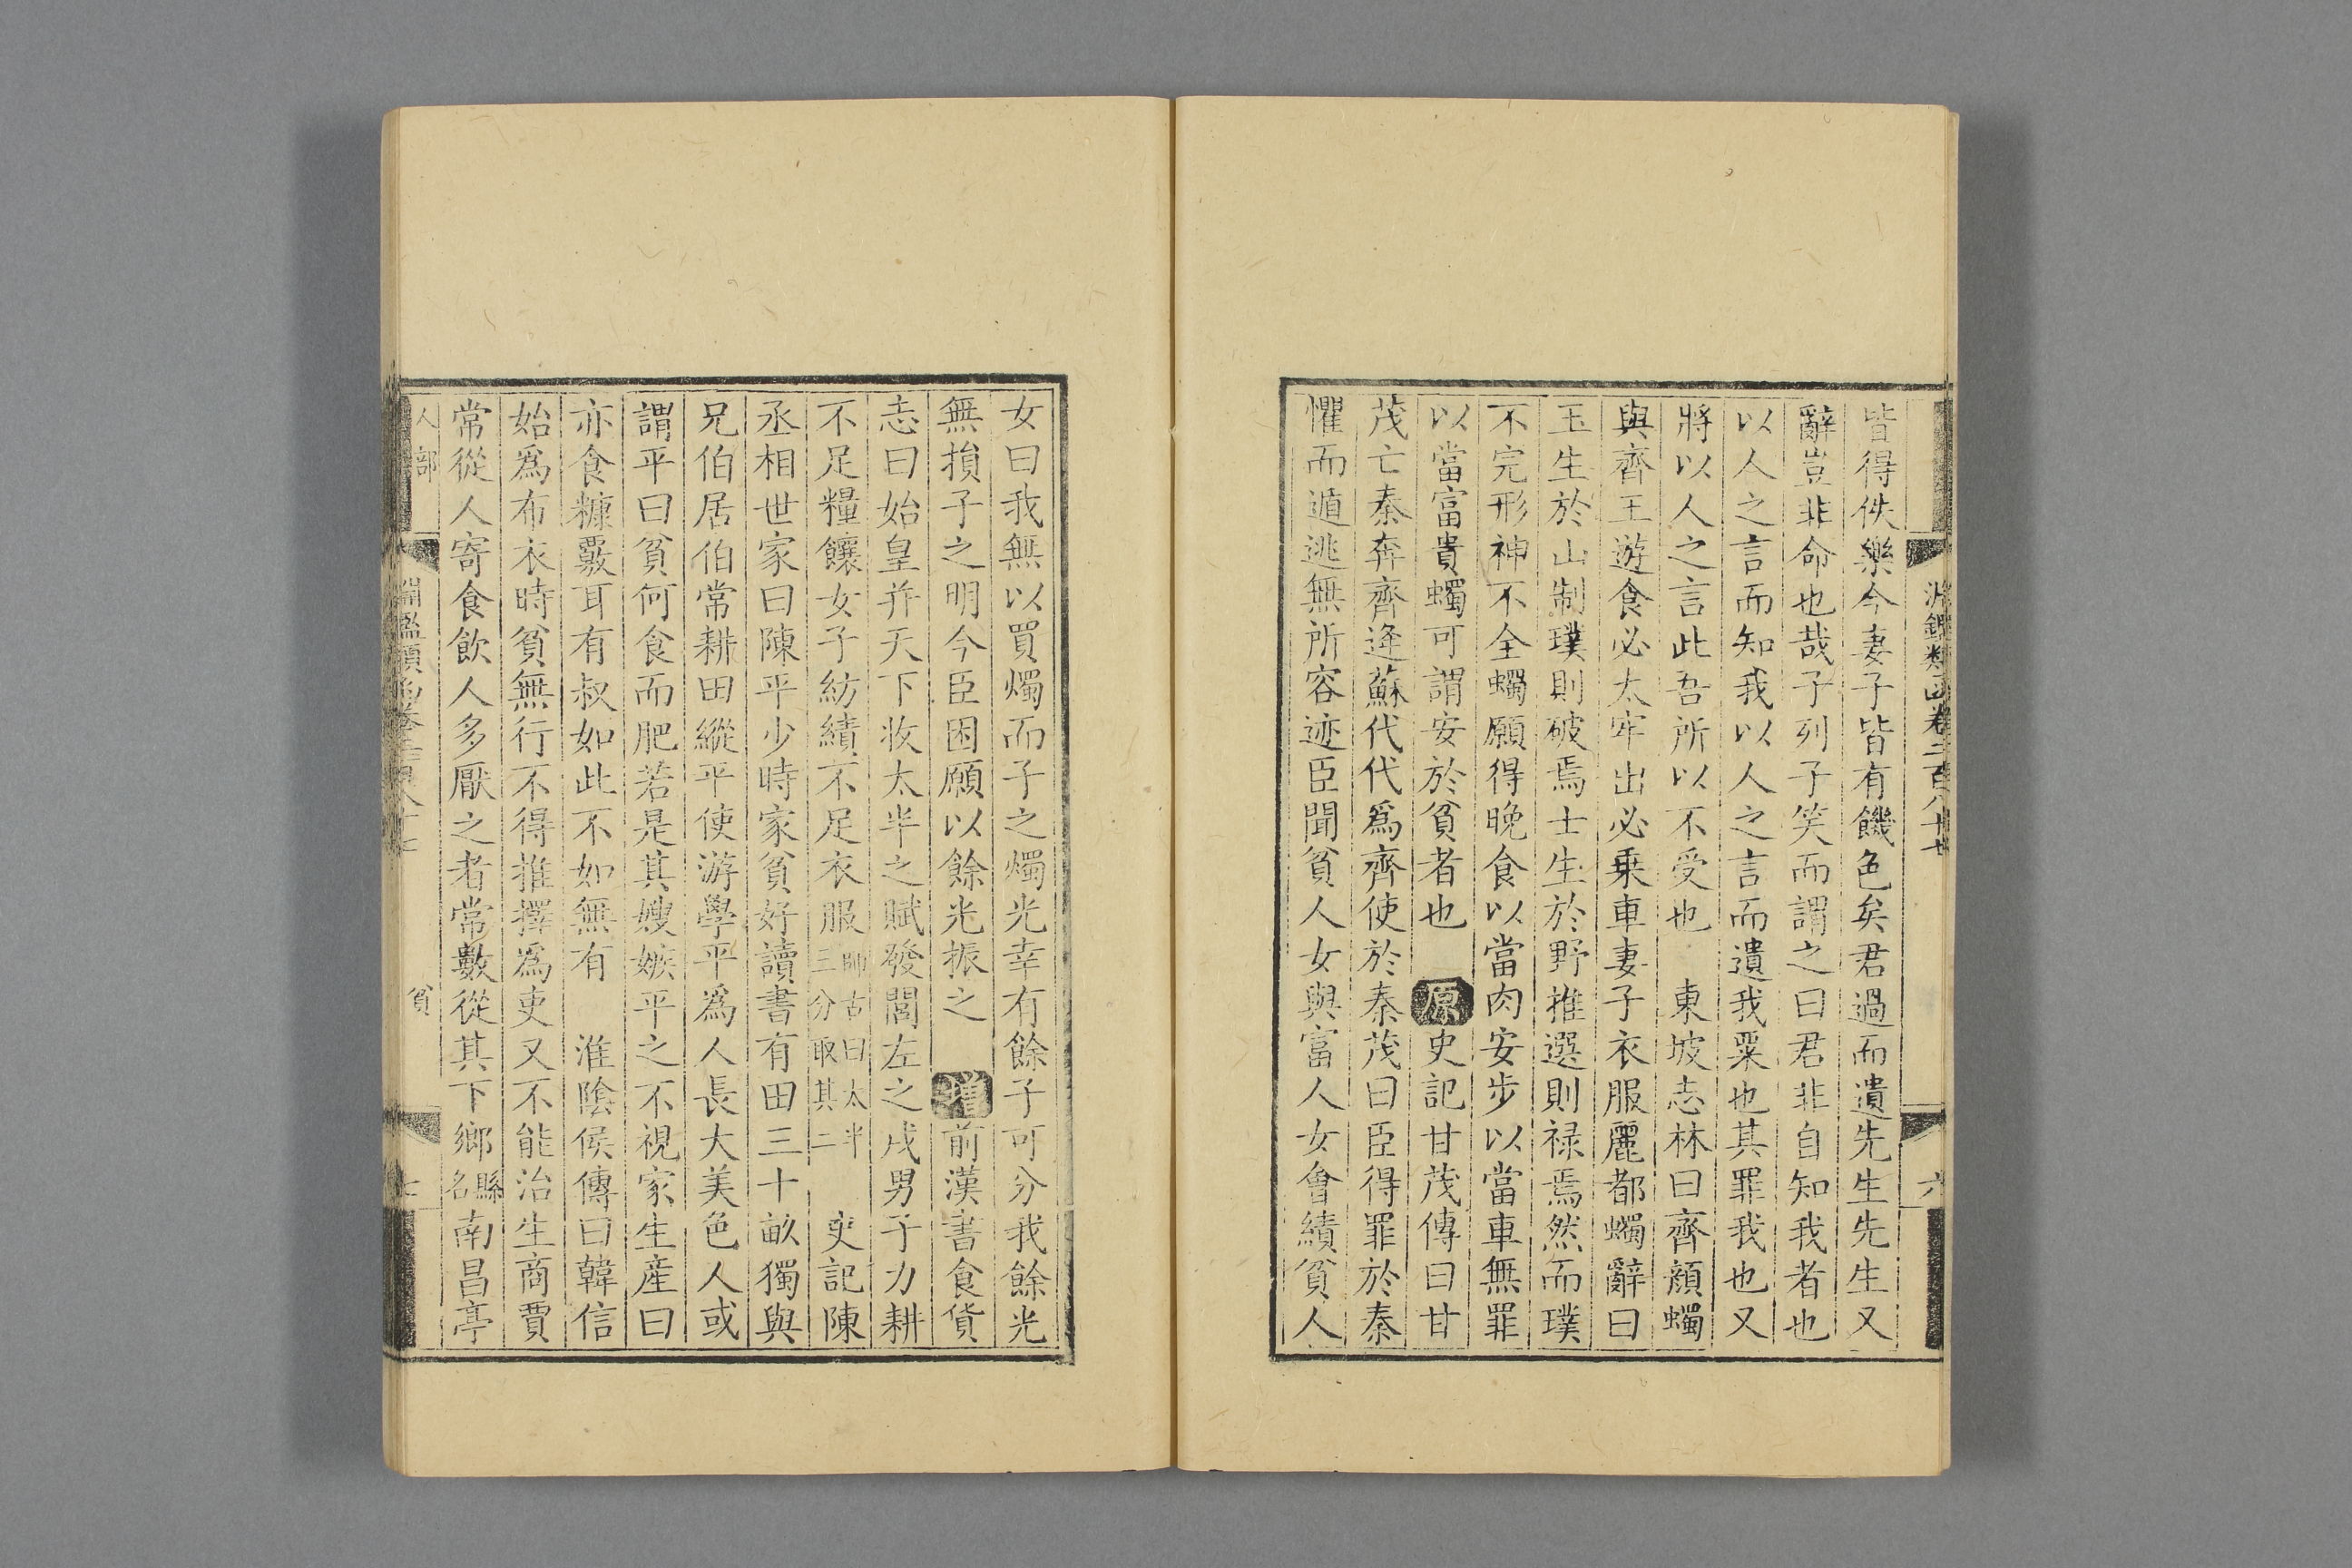 淵鑑類函卷二百八十七
六
皆得佚樂今妻子皆有饑色矣君過而遺先生先生又
辭豈非命也哉子列子笑而謂之曰君非自知我者也
以人之言而知我以人之言而遺我粟也其罪我也又
將以人之言此吾所以不受也 東坡志林曰齊顔蠋
與齊王遊食必太牢出必乗車妻子衣服麗都蠋辭曰
玉生於山制璞則破焉士生於野推選則禄焉然而璞
不完形神不全蠋願得晚食以當肉安步以當車無罪
以當富貴蠋可謂安於貧者也 原史記甘茂傳曰甘
茂亡秦奔齊逢蘇代代爲齊使於秦茂曰臣得罪於秦
懼而遁逃無所容迹臣聞貧人女與富人女會績貧人
女曰我無以買燭而子之燭光幸有餘子可分我餘光
無損子之明今臣困願以餘光振之 增前漢書食貨
志曰始皇并天下收太半之賦發閭左之戍男子力耕
不足糧饟女子紡績不足衣服師古曰太半三分取其二 史記陳
丞相世家曰陳平少時家貧好讀書有田三十畝獨與
兄伯居伯常耕田縱平使游學平爲人長大美色人或
謂平曰貧何食而肥若是其嫂嫉平之不視家生産曰
亦食糠覈耳有叔如此不如無有 淮陰侯傳曰韓信
始爲布衣時貧無行不得推擇爲吏又不能治生商賈
常從人寄食飲人多厭之者常數從其下鄉縣名南昌亭
人部
淵鑑類函卷二百八十七
貧
七